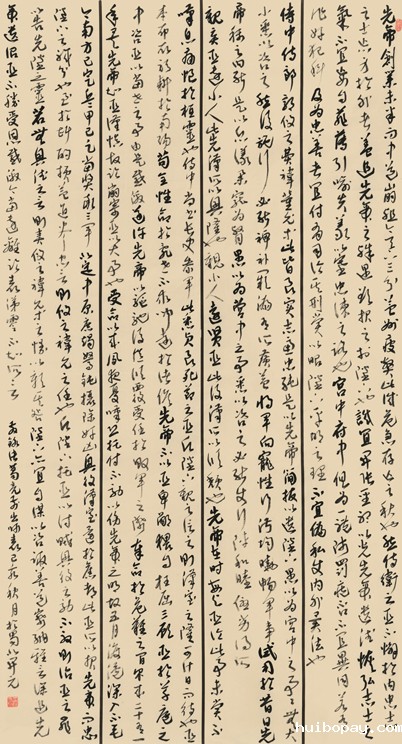 先帝創業未半而中道崩殂今天下三分益州疲弊此誠危急存亡之秋也然侍衛之臣不懈於内忠志
之士忘身於外者蓋追先帝之殊遇欲報之於陛下也誠宜開張聖聽以光先帝遺德恢弘志士之
氣不宜妄自菲薄引喻失義以塞忠諫之路也宮中府中俱為一體陟罰臧否不宜異同若有
作奸犯科及為忠善者宜付有司論其刑賞以昭陛下平明之理不宜偏私使内外異法也
侍中侍郎郭攸之費禕董允等此皆良實志慮忠純是以先帝簡拔以遺陛下愚以為宮中之事事無大
小悉以咨之然後施行必能裨補闕漏有所廣益將軍向寵性行淑均曉暢軍事試用於昔日先
帝稱之曰能是以衆議舉寵為督愚以為營中之事悉以咨之必能使行陣和睦優劣得所
親賢臣遠小人此先漢所以興隆也親小人遠賢臣此後漢所以傾頹也先帝在時每與臣論此事未嘗不
嘆息痛恨於桓靈也侍中尚書長史參軍此悉貞良死節之臣願陛下親之信之則漢室之隆可計日而待也臣
本布衣躬耕於南陽苟全性命於亂世不求聞達於諸侯先帝不以臣卑鄙猥自枉屈三顧臣於草廬之
中咨臣以當世之事由是感激遂許先帝以驅馳後值傾覆受任於敗軍之際奉命於危難之間爾來二十有一
年矣先帝知臣謹慎故臨崩寄臣以大事也受命以來夙夜憂嘆恐托付不效以傷先帝之明故五月渡瀘深入不毛
今南方已定兵甲已足當獎率三軍北定中原庶竭駑鈍攘除奸凶興復漢室還於舊都此臣所以報先帝而忠
陛下之職分也至於斟酌損益進盡忠言則攸之禕允之任也願陛下托臣以討賊興復之效不效則治臣之罪
以告先帝之靈若無興德之言則責攸之禕允等之慢以彰其咎陛下亦宜自謀以咨諏善道察納雅言深追先
帝遺詔臣不勝受恩感激今當遠離臨表涕零不知所云
右錄諸葛亮前出師表己亥秋月於蜀
huibopay.com